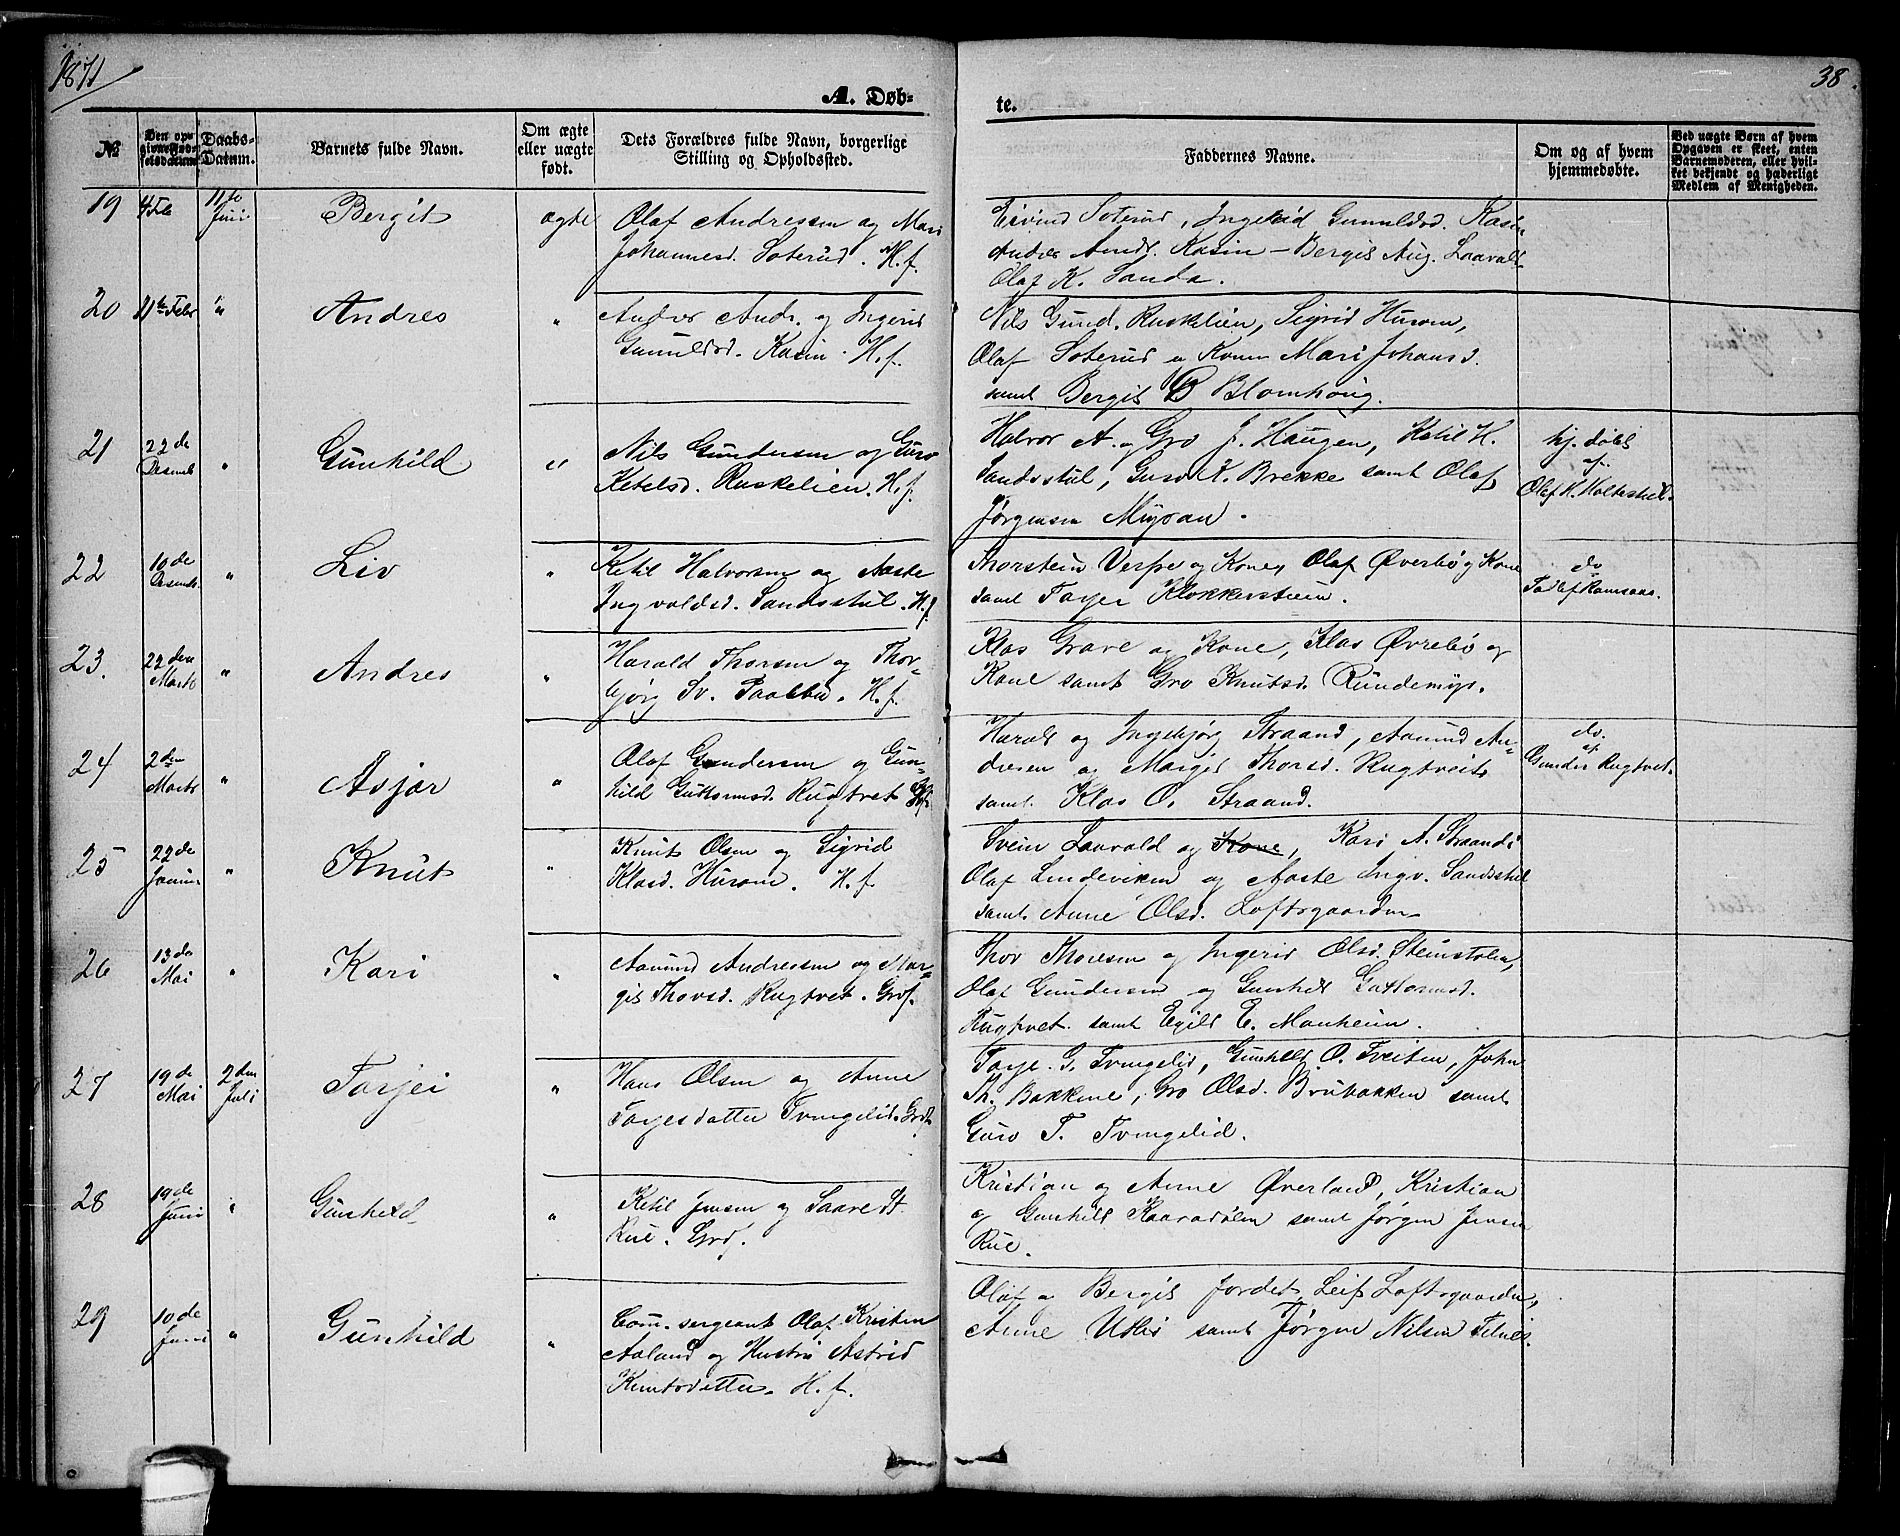 1871
38.
A. Døb-
te.
№
Den opgivne Fødselsdatum
Daabs-Datum.
Barnets fulde Navn.
Om ægte eller uægte født.
Dets Forældres fulde Navn, borgerlige Stilling og Opholdssted.
Faddernes Navne.
Om og af hvem hjemmedøbte.
Ved uægte Børn af hvem Opgaven er skeet, enten Barnemoderen, eller hvilket bekjendt og hæderligt Medlem af Menigheden.
19 4 Feb 11te Juni Bergit ægte
Olaf Andressen og Mari
Johannesd. Soterud. H.f.
Eivind Soterud, Ingerid Gunuldsd. Kasin
Andres Andr. Kasin - Bergit Aug. Laavald
Olaf K. Sanda.
20 11te Febr " Andres "
Andres Andr. og Ingerid
Gunuldsd. Kasin. H.f.
Nils Gund. Ruskelien, Sigrid Husom,
Olaf Soterud og Kone Mari Johansd.
samt Bergit B Blomhoug.
21 22de Decemb " Gunhild "
Nils Gundersen og Guro
Ketelsd. Ruskelien. H.f.
Halvor A. og Gro J. Haugen, Ketil H.
Sandsstul, Guro K. Brekke samt Olaf
Jørgensen Myran.
hj. døbt
af
Olaf K. Holtestul.
22 10de Decemb. " Liv "
Ketil Halvorsen og Aaste
Ingvoldsd. Sandsstul. H.f.
Thorstein Verpe og Kone, Olaf Øverbø og Kone
samt Torjer Klokkersteien.
do
Tollef Ramsaas.
23. 22den Marts " Andres "
Harald Thorsen og Thor-
bjørg Sv. Paalbu. H.f.
Klas Grave og Kone, Klas Øvrebø og
Kone samt Gro Knutsd. Rundemyr.
24 2den Marts " Asjer "
Olaf Gundersen og Gun-
hild Guttormsd. Rugtvet Grf.
Harald og Ingebjørg Straand, Aamund An-
dresen og Margit Thorsd. Rugtveit
samt Klas O. Straand.
do.
af
Gunder Rugtvet.
25 22de Januar " Knut "
Knut Olsen og Sigrid
Klasd. Husom. H.f.
Svein Laavald og Kone, Kari A. Straand,
Olaf Lindeviken og Aaste Ingv. Sandsstul
samt Anne Olsd. Loftsgaarden
26 13de Mai " Kari "
Aamund Andressen og Mar-
git Thorsd. Rugtvet. Grf.
Thov Thovesen og Ingerid Olsd. Steinstolen,
Olaf Gundersen og Gunhild Guttormsd.
Rugtvet samt Egild E. Manheim.
27 19de Mai 2den Juli Torjei "
Hans Olsen og Anne
Torjesdatter Tvingelid. Grf.
Torje G. Tvingelid, Gunhild O. Tveiten, John
Th. Bakkene, Gro Olsd. Brubakken samt
Guro T. Tvingelid.
28 19de Juni " Gunhild "
Ketil Jensen og Saave Dt.
Rue. Grf.
Kristian og Anne Øverland, Kristian
og Gunhild Kaaradalen samt Jørgen Jensen
Rue.
29 10de Juni " Gunhild "
Com. sergeant Olaf Kristen
Aaland og Hustru Astrid
Knutsdatter. H.f.
Olaf og Bergit Jordet, Leif Loftsgaarden,
Anne Utbø samt Jørgen Nilsen Felnes.